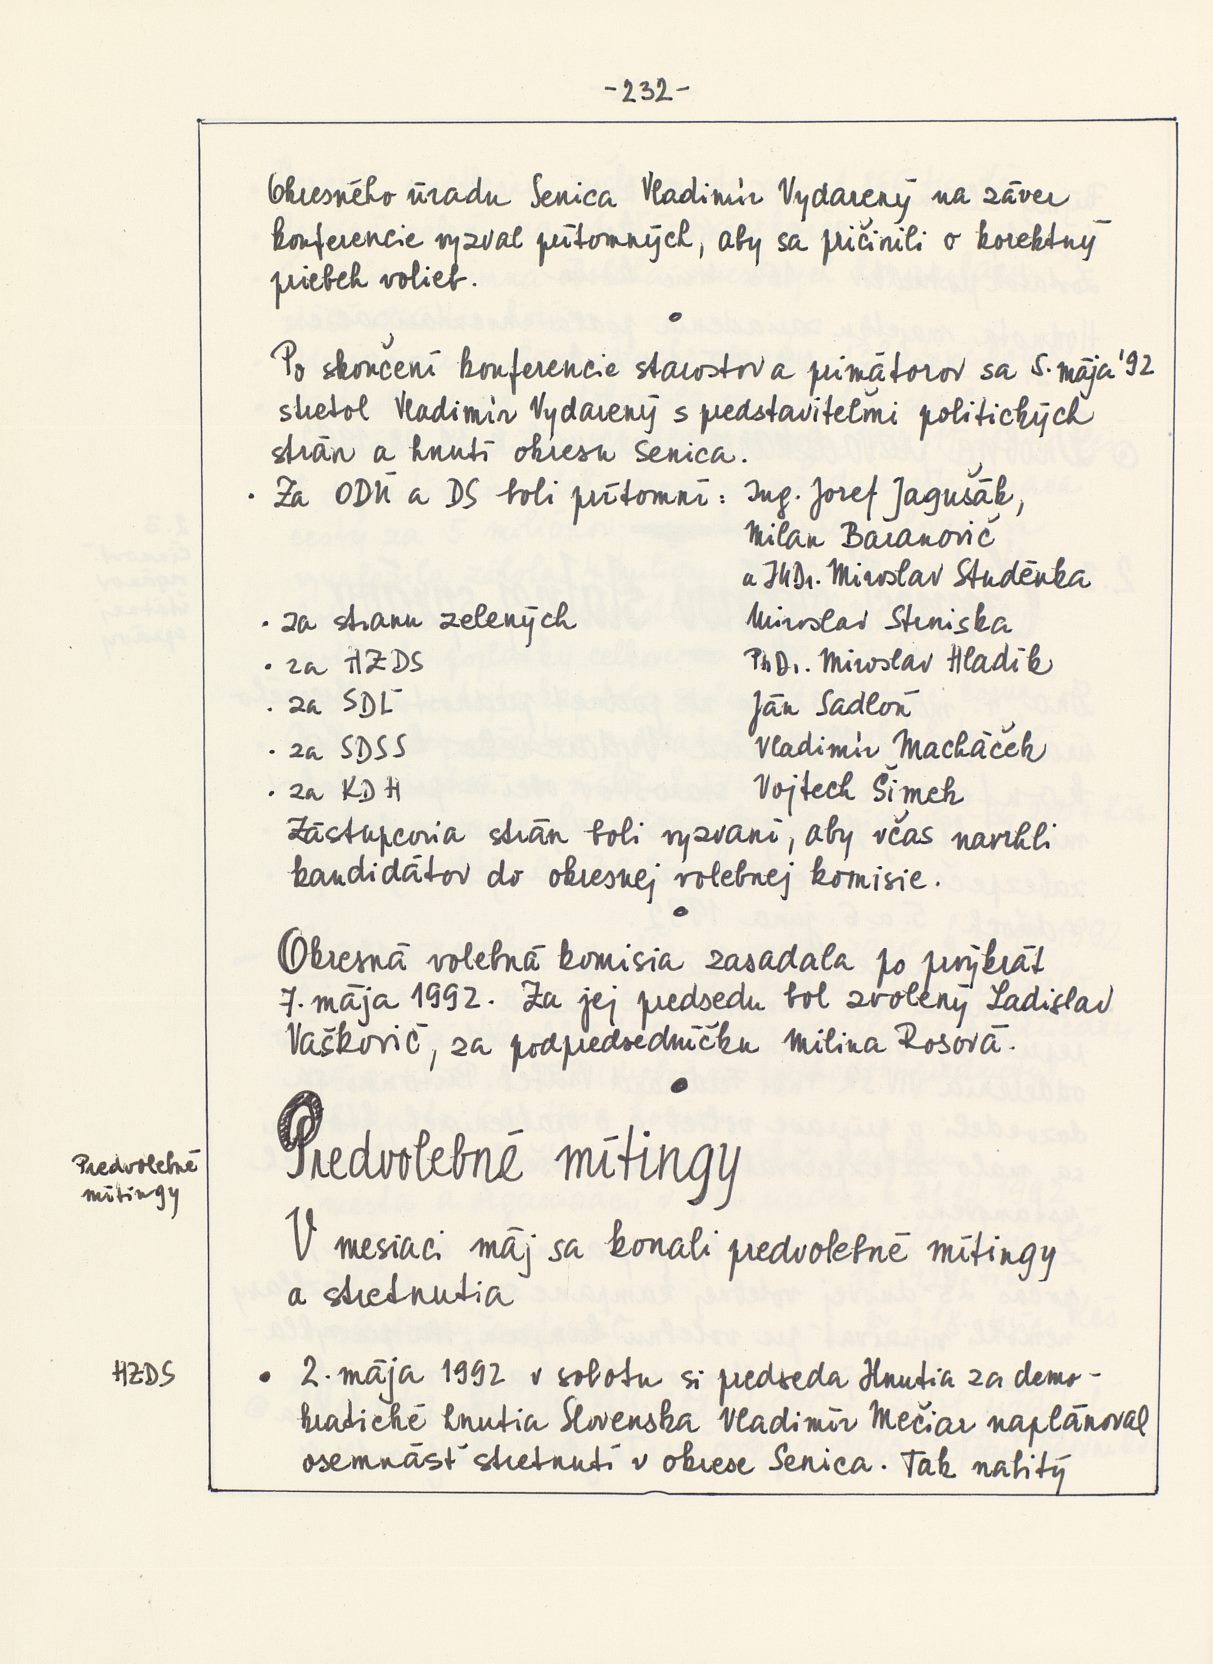 -232-
Okresného úradu Senica Vladimír Vydarený na záver
konferencie vyzval prítomných, aby sa pričinili o korektný
priebeh volieb.
Po skončení konferencie starostov a primátorov sa 5. mája '92
stretol Vladimír Vydarený s predstaviteľmi politických
strán a hnutí okresu Senica.
• Za ODÚ a DS boli prítomní: Ing. Jozef Jagušák,
Milan Baranovič
a JUDr. Miroslav Studénka
• za stranu zelených Miroslav Struiska
• za HZDS PhDr. Miroslav Hladík
• za SDĽ Ján Sadloň
• za SDSS Vladimír Macháček
• za KDH Vojtech Šimek
Zástupcovia strán boli vyzvaní, aby včas navrhli
kandidátov do okresnej volebnej komisie.
Okresná volebná komisia zasadala po prvýkrát
7. mája 1992. Za jej predsedu bol zvolený Ladislav
Vaškovič, za podpredsedníčku Milina Rosová.
Predvolebné
mítingy
Predvolebné mítingy
V mesiaci máj sa konali predvolebné mítingy
a stretnutia
HZDS
• 2. mája 1992 v sobotu si predseda Hnutia za demo-
kratické hnutia Slovenska Vladimír Mečiar naplánoval
osemnásť stretnutí v okrese Senica. Tak nabitý